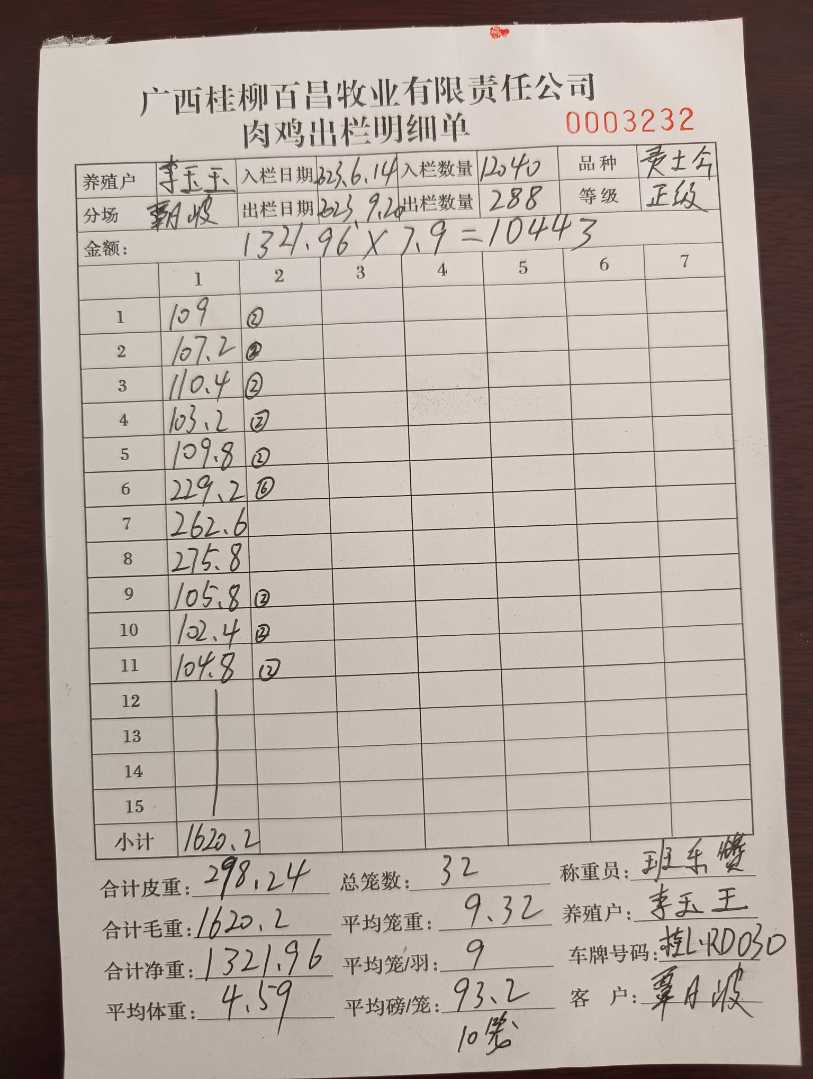 广西桂柳百昌牧业有限责任公司
肉鸡出栏明细单 0003232
养殖户 李玉玉 入栏日期 2023.6.14 入栏数量 12040 品种 黄土今
分场 覃月波 出栏日期 2023.9.20 出栏数量 288 等级 正级
金额: 1321.96 X 7.9 = 10443
1 2 3 4 5 6 7
1 109 ②
2 107.2 ②
3 110.4 ②
4 103.2 ②
5 109.8 ②
6 229.2 ⑥
7 262.6
8 275.8
9 105.8 ②
10 102.4 ②
11 104.8 ②
12
13
14
15
小计 1620.2
合计皮重: 298.24 总笼数: 32 称重员: 班乐
合计毛重: 1620.2 平均笼重: 9.32 养殖户: 李玉王
合计净重: 1321.96 平均笼/羽: 9 车牌号码: 桂L·RD030
平均体重: 4.59 平均磅/笼: 93.2 客 户: 覃月波